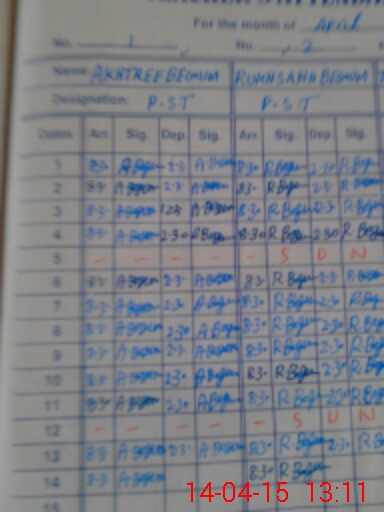 For the month of April
No. 1 No. 2
Name: AKHTREE BEGUM RUKHSANA BEGUM
Designation: P.S.T P.S.T
Dates Arr. Sig. Dep. Sig. Arr. Sig. Dep. Sig.
1 8:3 A Begum 2:3 A Begum 8:3 R Begum 2:30 R Begum
2 8:3 A Begum 2:3 A Begum 8:3 R Begum 2:3 R Begum
3 8:3 A Begum A Begum 8:3 R Begum 2:3 R Begum
4 8:3 A Begum 2:30 A Begum 8:30 R Begum 2:30 R Begum
5 - - - - - S U N
6 8:3 A Begum 2:3 A Begum 8:3 R Begum 2:3 R Begum
7 8:3 A Begum 2:3 A Begum 8:30 R Begum 2:3 R Begum
8 8:3 A Begum 2:30 A Begum 8:30 R Begum 2:30 R Begum
9 8:3 A Begum 2:3 A Begum 8:30 R Begum 2:30 R Begum
10 8:3 A Begum 2:30 A Begum 8:30 R Begum 2:30 R Begum
11 8:3 A Begum 2:30 A Begum 8:30 R Begum 2:30 R Begum
12 - - - - - S U N
13 8:3 A Begum 2:3 A Begum 8:30 R Begum 2:3 R Begum
14 8:3 A Begum 8:30 R Begum
14-04-15 13:11